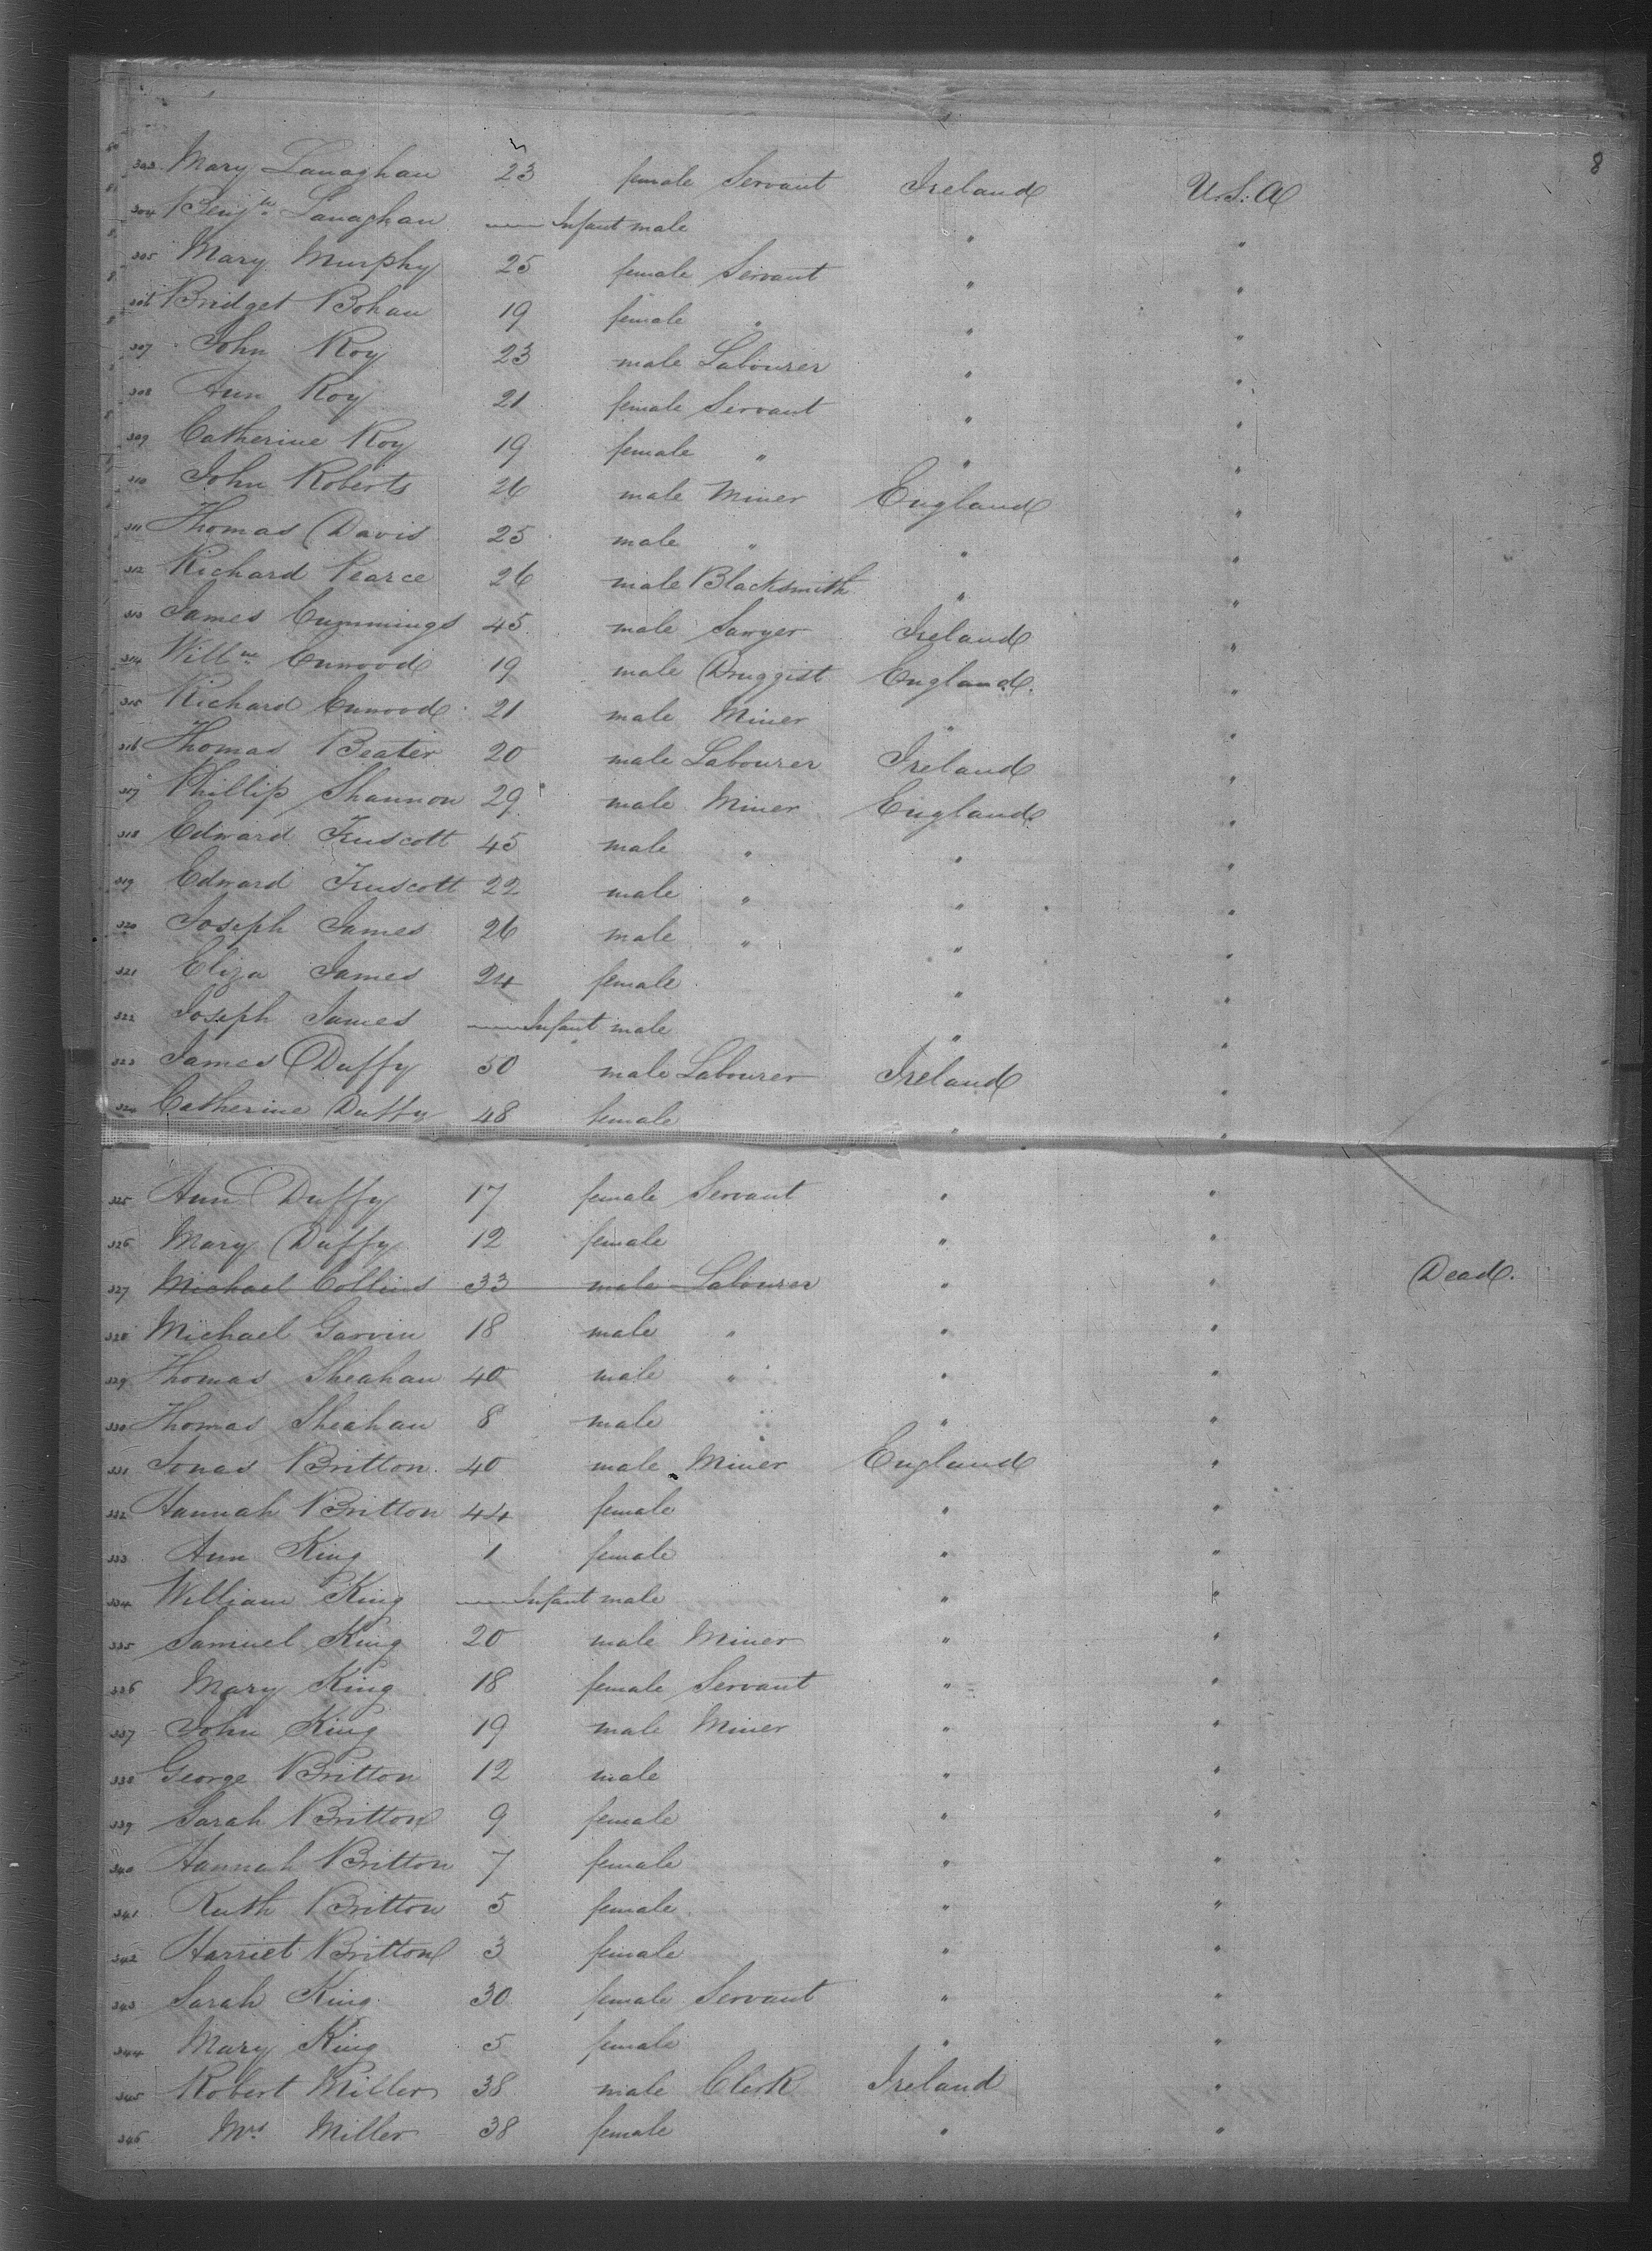 8
303 Mary Lanaghan 23 female Servant Ireland U.S.A
304 Benjn Lanaghan — Infant male " "
305 Mary Murphy 25 female Servant " "
306 Bridget Bohan 19 female " " "
307 John Roy 23 male Labourer " "
308 Ann Roy 21 female Servant " "
309 Catherine Roy 19 female " " "
310 John Roberts 26 male Miner England "
311 Thomas Davis 25 male " " "
312 Richard Pearce 26 male Blacksmith " "
313 James Cummings 45 male Sawyer Ireland "
314 Willm 19 male Druggist England "
315 Richard 21 male Miner " "
316 Thomas Beater 20 male Labourer Ireland "
317 Phillip Shannon 29 male Miner England "
318 Edward Truscott 45 male " " "
319 Edward Truscott 22 male " " "
320 Joseph James 26 male " " "
321 Eliza James 24 female " "
322 Joseph James — Infant male " "
323 James Duffy 50 male Labourer Ireland "
324 Catherine Duffy 48 female " "
325 Ann Duffy 17 female Servant " "
326 Mary Duffy 12 female " "
327 Michael Collins 33 male Labourer " " Dead.
328 Michael Garvin 18 male " " "
329 Thomas Sheahan 40 male " " "
330 Thomas Sheahan 8 male " "
331 Jonas Britton 40 male Miner England "
332 Hannah Britton 44 female " "
333 Ann King 1 female " "
334 William King — Infant male " "
335 Samuel King 20 male Miner " "
336 Mary King 18 female Servant " "
337 John King 19 male Miner " "
338 George Britton 12 male " "
339 Sarah Britton 9 female " "
340 Hannah Britton 7 female " "
341 Ruth Britton 5 female " "
342 Harriet Britton 3 female " "
343 Sarah King 30 female Servant " "
344 Mary King 5 female " "
345 Robert Miller 38 male Clerk Ireland "
346 Mrs Miller 38 female " "